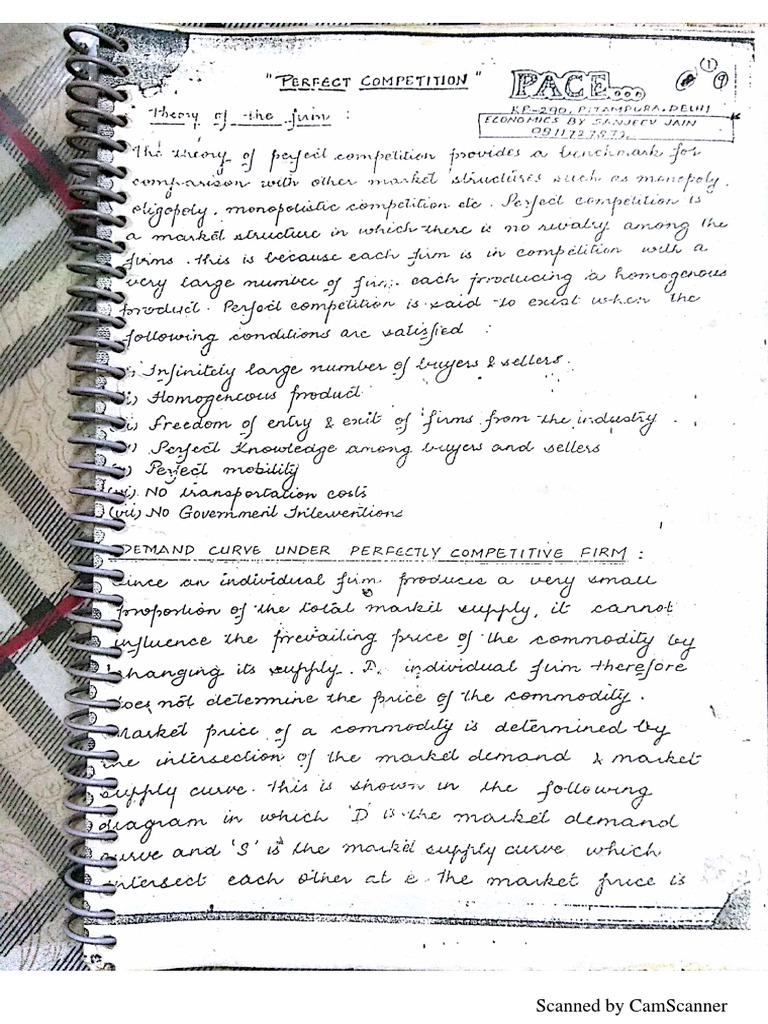 "PERFECT COMPETITION"
PACE...
①
KP-290, PITAMPURA, DELHI
ECONOMICS BY SANJEEV JAIN
Theory of the firm :
The theory of perfect competition provides a benchmark for
comparison with other market structures such as monopoly,
oligopoly, monopolistic competition etc. Perfect competition is
a market structure in which there is no rivalry among the
firms. This is because each firm is in competition with a
very large number of firms each producing a homogenous
product. Perfect competition is said to exist when the
following conditions are satisfied :
i) Infinitely large number of buyers & sellers.
i) Homogeneous product
ii) Freedom of entry & exit of firms from the industry.
v) Perfect Knowledge among buyers and sellers
v) Perfect mobility
(vi) NO transportation costs
(vii) No Government Interventions
DEMAND CURVE UNDER PERFECTLY COMPETITIVE FIRM :
Since an individual firm produces a very small
proportion of the total market supply, it cannot
influence the prevailing price of the commodity by
changing its supply. individual firm therefore
does not determine the price of the commodity.
Market price of a commodity is determined by
the intersection of the market demand & market
supply curve. This is shown in the following
diagram in which 'D' is the market demand
curve and 'S' is the market supply curve which
intersect each other at e. The market price is
Scanned by CamScanner